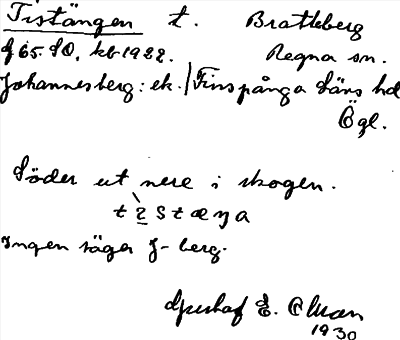 Tistängen t. Bratteberg
f 65. SO, kb. 1922. Regna sn.
Johannesberg: ek. / Finspånga läns hd
Ögl.
Söder ut nere i skogen.
Ingen säger J-berg.
E. Ekman
1930